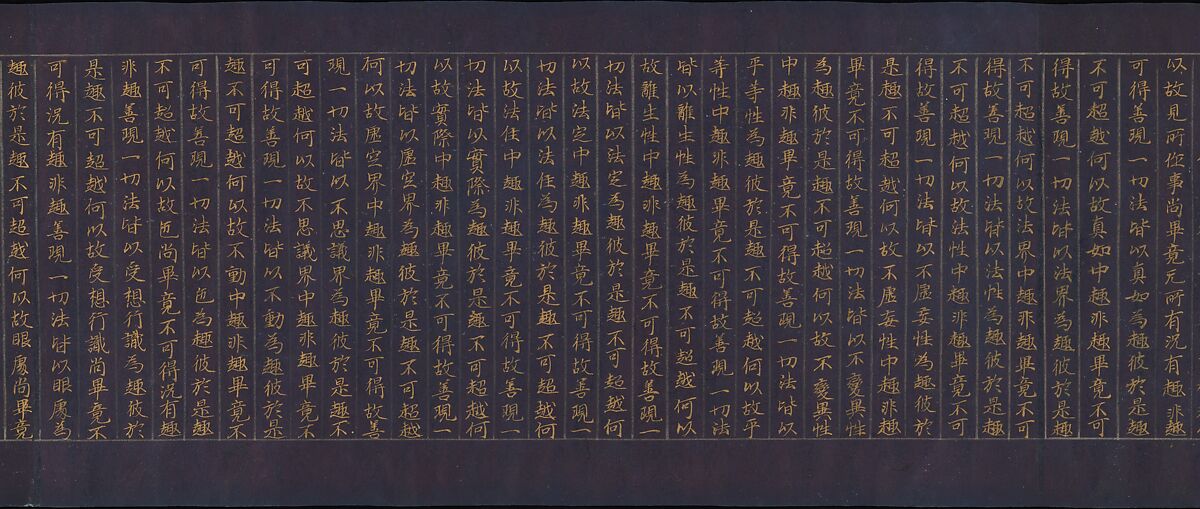 以故見所作事尚畢竟无所有況有趣非趣
可得善現一切法皆以真如為趣彼於是趣
不可超越何以故真如中趣非趣畢竟不可
得故善現一切法皆以法界為趣彼於是趣
不可超越何以故法界中趣非趣畢竟不可
得故善現一切法皆以法性為趣彼於是趣
不可超越何以故法性中趣非趣畢竟不可
得故善現一切法皆以不虛妄性為趣彼於
是趣不可超越何以故不虛妄性中趣非趣
畢竟不可得故善現一切法皆以不變異性
為趣彼於是趣不可超越何以故不變異性
中趣非趣畢竟不可得故善現一切法皆以
平等性為趣彼於是趣不可超越何以故平
等性中趣非趣畢竟不可得故善現一切法
皆以離生性為趣彼於是趣不可超越何以
故離生性中趣非趣畢竟不可得故善現一
切法皆以法定為趣彼於是趣不可超越何
以故法定中趣非趣畢竟不可得故善現一
切法皆以法住為趣彼於是趣不可超越何
以故法住中趣非趣畢竟不可得故善現一
切法皆以實際為趣彼於是趣不可超越何
以故實際中趣非趣畢竟不可得故善現一
切法皆以虛空界為趣彼於是趣不可超越
何以故虛空界中趣非趣畢竟不可得故善
現一切法皆以不思議界為趣彼於是趣不
可超越何以故不思議界中趣非趣畢竟不
可得故善現一切法皆以不動為趣彼於是
趣不可超越何以故不動中趣非趣畢竟不
可得故善現一切法皆以色為趣彼於是趣
不可超越何以故色尚畢竟不可得況有趣
非趣善現一切法皆以受想行識為趣彼於
是趣不可超越何以故受想行識尚畢竟不
可得況有趣非趣善現一切法皆以眼處為
趣彼於是趣不可超越何以故眼處尚畢竟